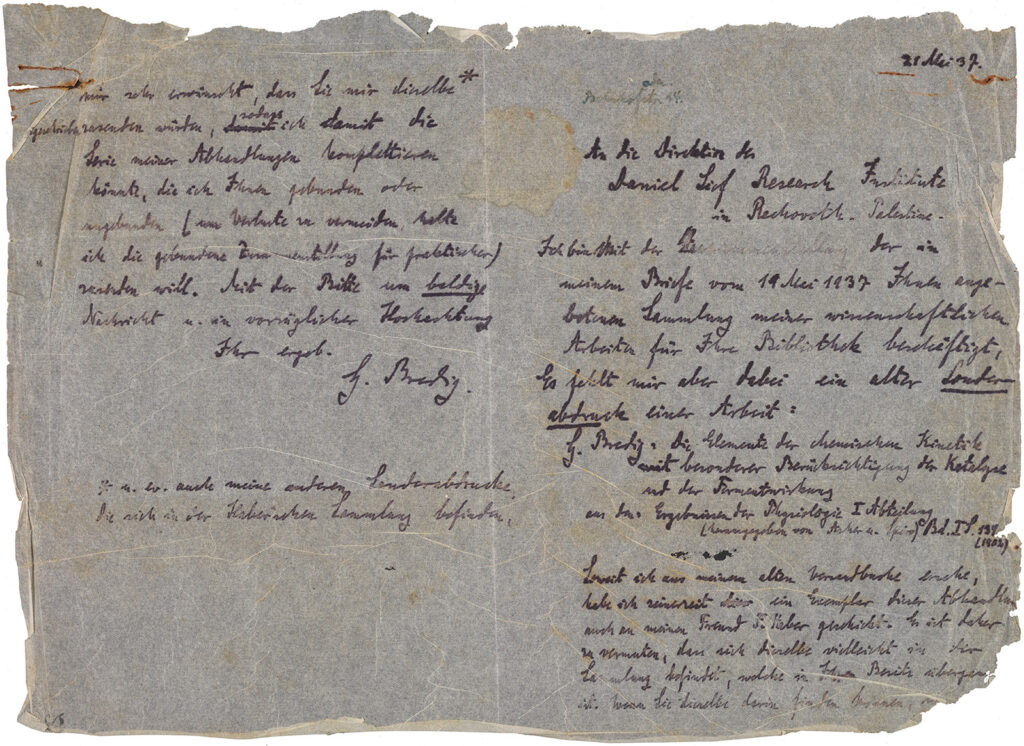 21 Mei 37.
An die Direktion des
Daniel Sief Research Institute
in Rechovoth. Palestine.
Ich bin mit der der in
meinem Briefe vom 19 Mei 1937 Ihnen ange-
botenen Sammlung meiner wissenschaftlichen
Arbeiten für Ihre Bibliothek beschäftigt,
Es fehlt mir aber dabei ein alter Sonder-
abdruck einer Arbeit:
G. Bredig: Die Elemente der chemischen Kinetik
mit besonderer Berücksichtigung der Katalyse
und der Fermentwirkung
aus den Ergebnissen der Physiologie I Abteilung
(herausgegeben von Asher u. Spiro) Bd. I S. 134
(1902)
Soweit ich aus meinem alten Versandbuche ersehe,
habe ich seinerzeit ein Exemplar dieser Abhandlun
auch an meinen Freund F. Haber geschickt. Es ist daher
zu vermuten, dass sich dieselbe vielleicht in der
Sammlung befindet, welche in Ihren Besitz übergegan
ist. Wenn Sie dieselbe darin finden können,
mir sehr erwünscht, dass Sie mir dieselbe *
zusenden würden, sodass ich damit die
Serie meiner Abhandlungen komplettieren
könnte, die ich Ihnen gebunden oder
ungebunden (um Verluste zu vermeiden, halte
ich die gebundene Form für praktischer)
zusenden will. Mit der Bitte um baldige
Nachricht u. in vorzüglicher Hochachtung
Ihr ergeb.
G. Bredig.
* u. ev. auch meine anderen Sonderabdrucke,
die sich in der Haberschen Sammlung befinden,